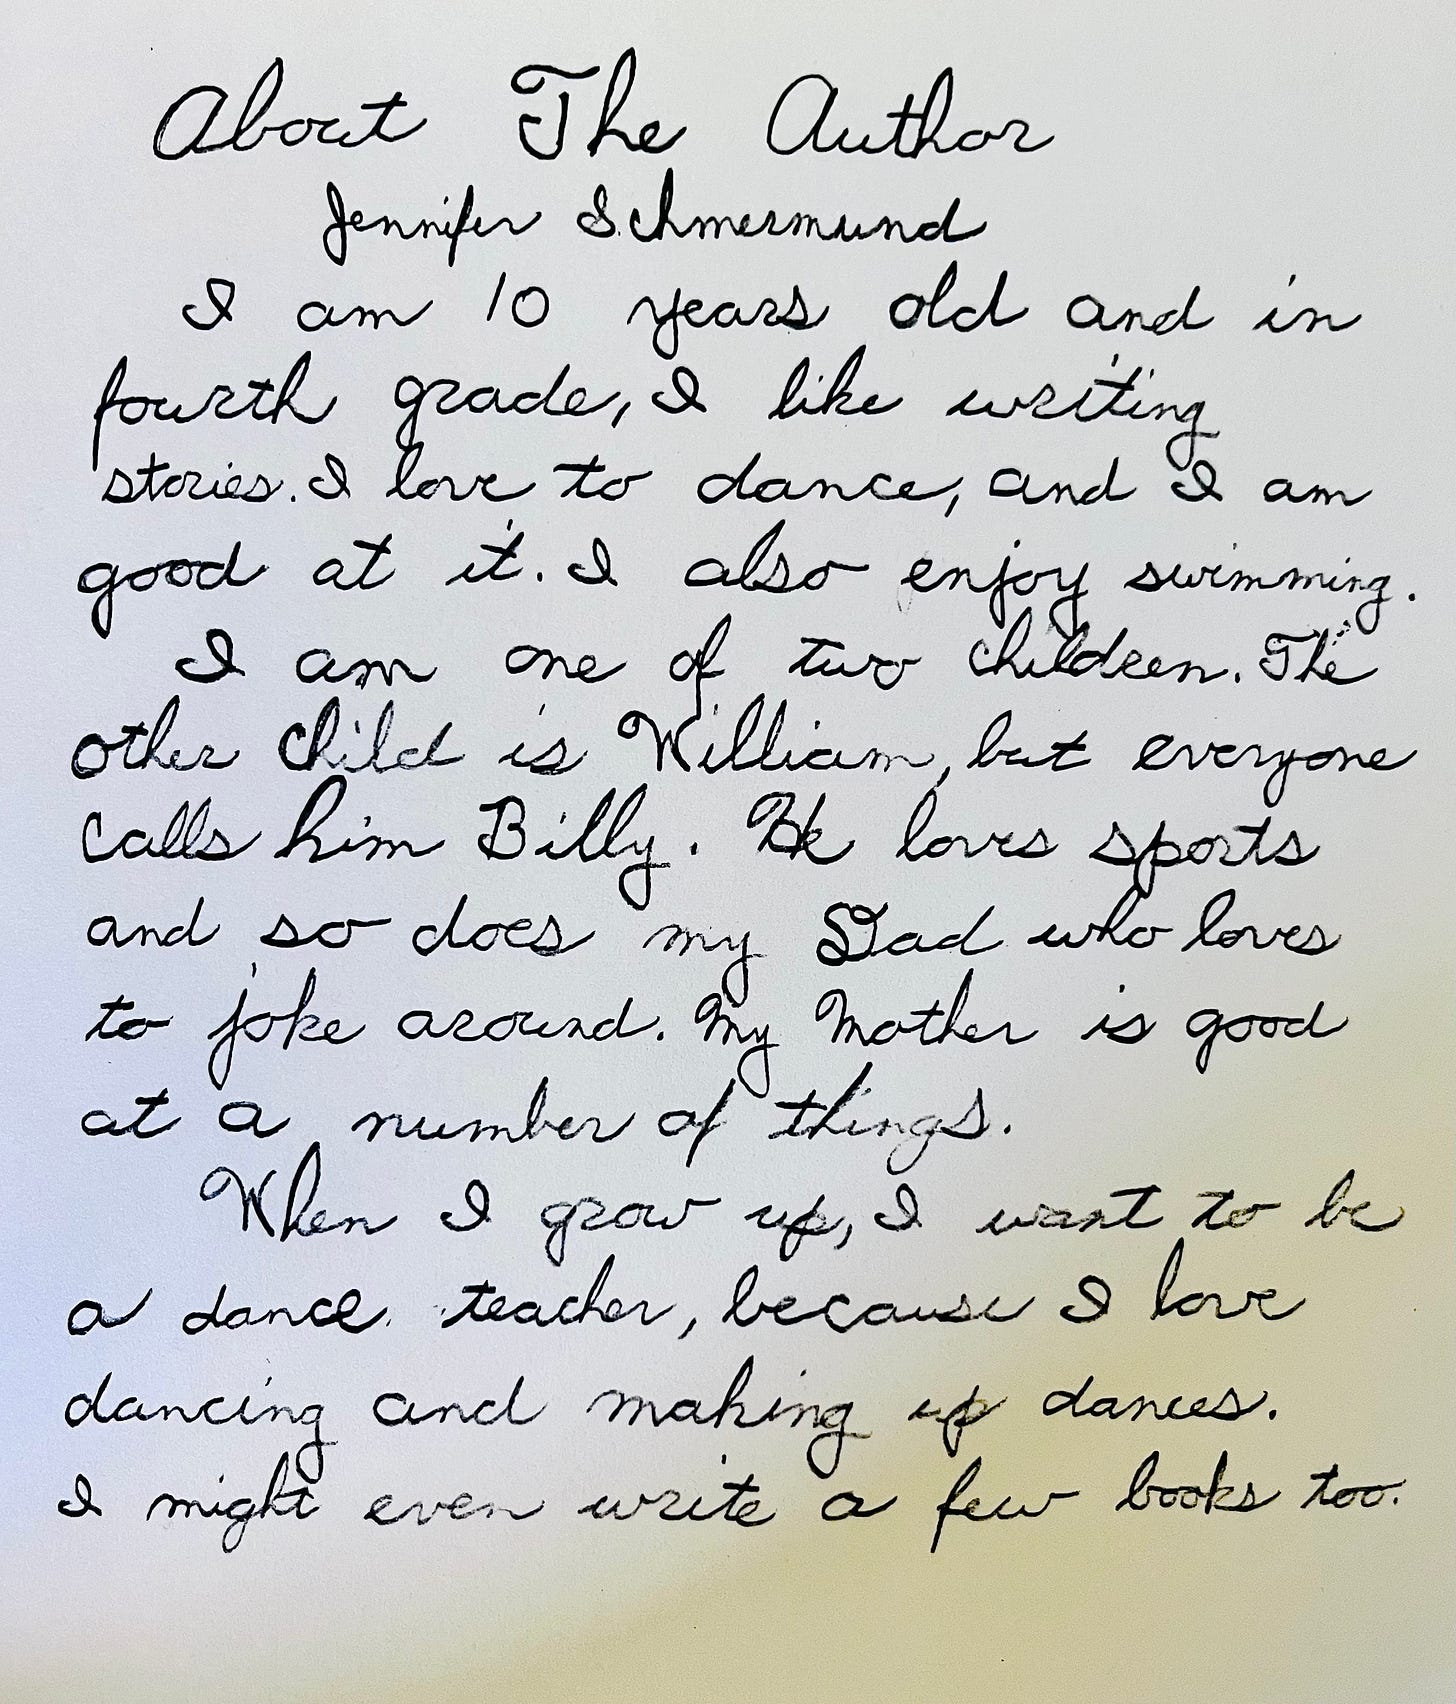 About The Author
Jennifer Schmermund
I am 10 years old and in
fourth grade, I like writing
stories. I love to dance, and I am
good at it. I also enjoy swimming.
I am one of two children. The
other child is William, but everyone
calls him Billy. He loves sports
and so does my Dad who loves
to joke around. My Mother is good
at a number of things.
When I grow up, I want to be
a dance teacher, because I love
dancing and making up dances.
I might even write a few books too.